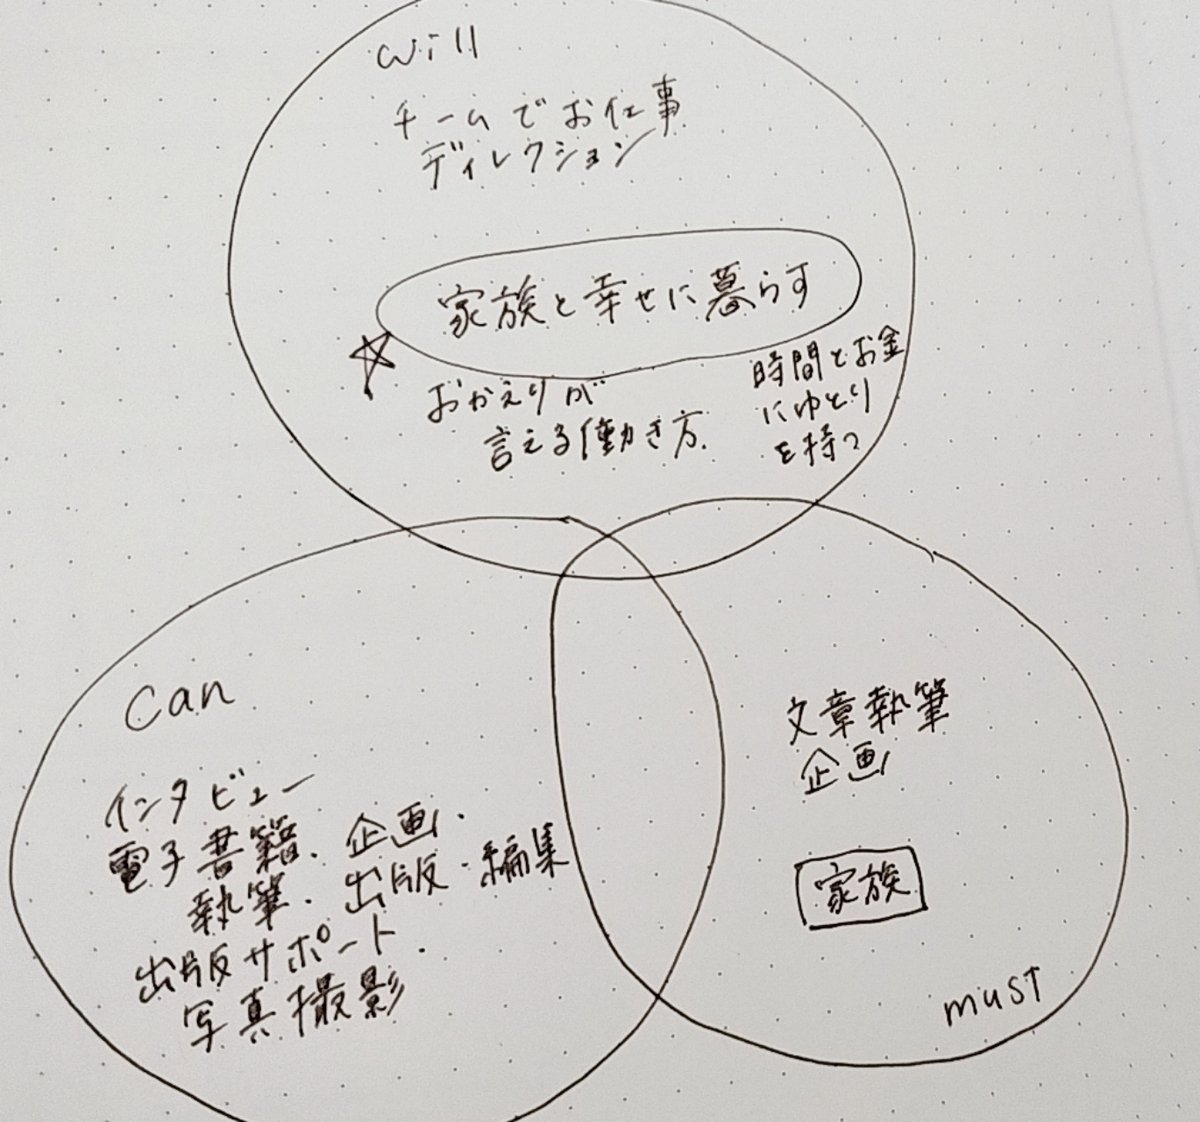 will
チームでお仕事
ディレクション
家族と幸せに暮らす
おかえりが
言える働き方
時間とお金
にゆとり
を持つ
can
インタビュー
電子書籍、企画・
執筆、出版・編集
出版サポート・
写真撮影
文章執筆
企画
家族
must